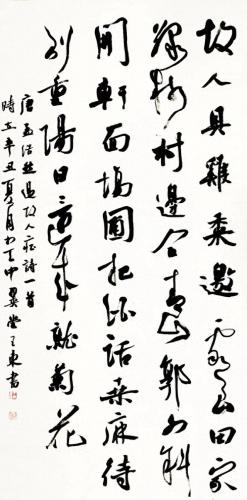 故人具雞黍邀我至田家
綠樹村邊合青山郭外斜
開軒面場圃把酒話桑麻待
到重陽日還來就菊花
唐孟浩然過故人莊詩一首
時在辛丑夏月東書